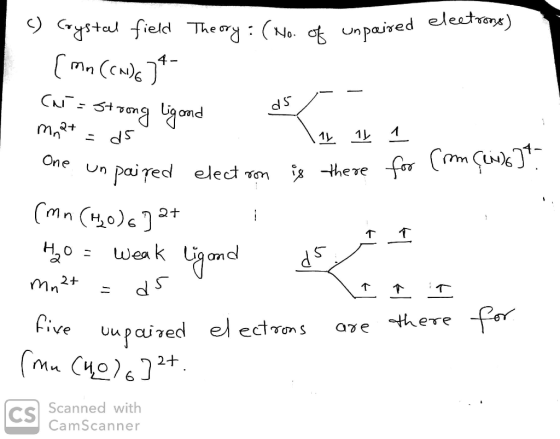 c) Crystal field Theory : (No. of unpaired electrons)
[Mn(CN)6]4-
CN- = strong ligand
d5
Mn2+ = d5
1L 1L 1
One unpaired electron is there for [Mn(CN)6]4-.
[Mn(H2O)6]2+
↑ ↑
H2O = weak ligand
d5
Mn2+ = d5
↑ ↑ ↑
five unpaired electrons are there for
[Mn(H2O)6]2+.
CS Scanned with
CamScanner